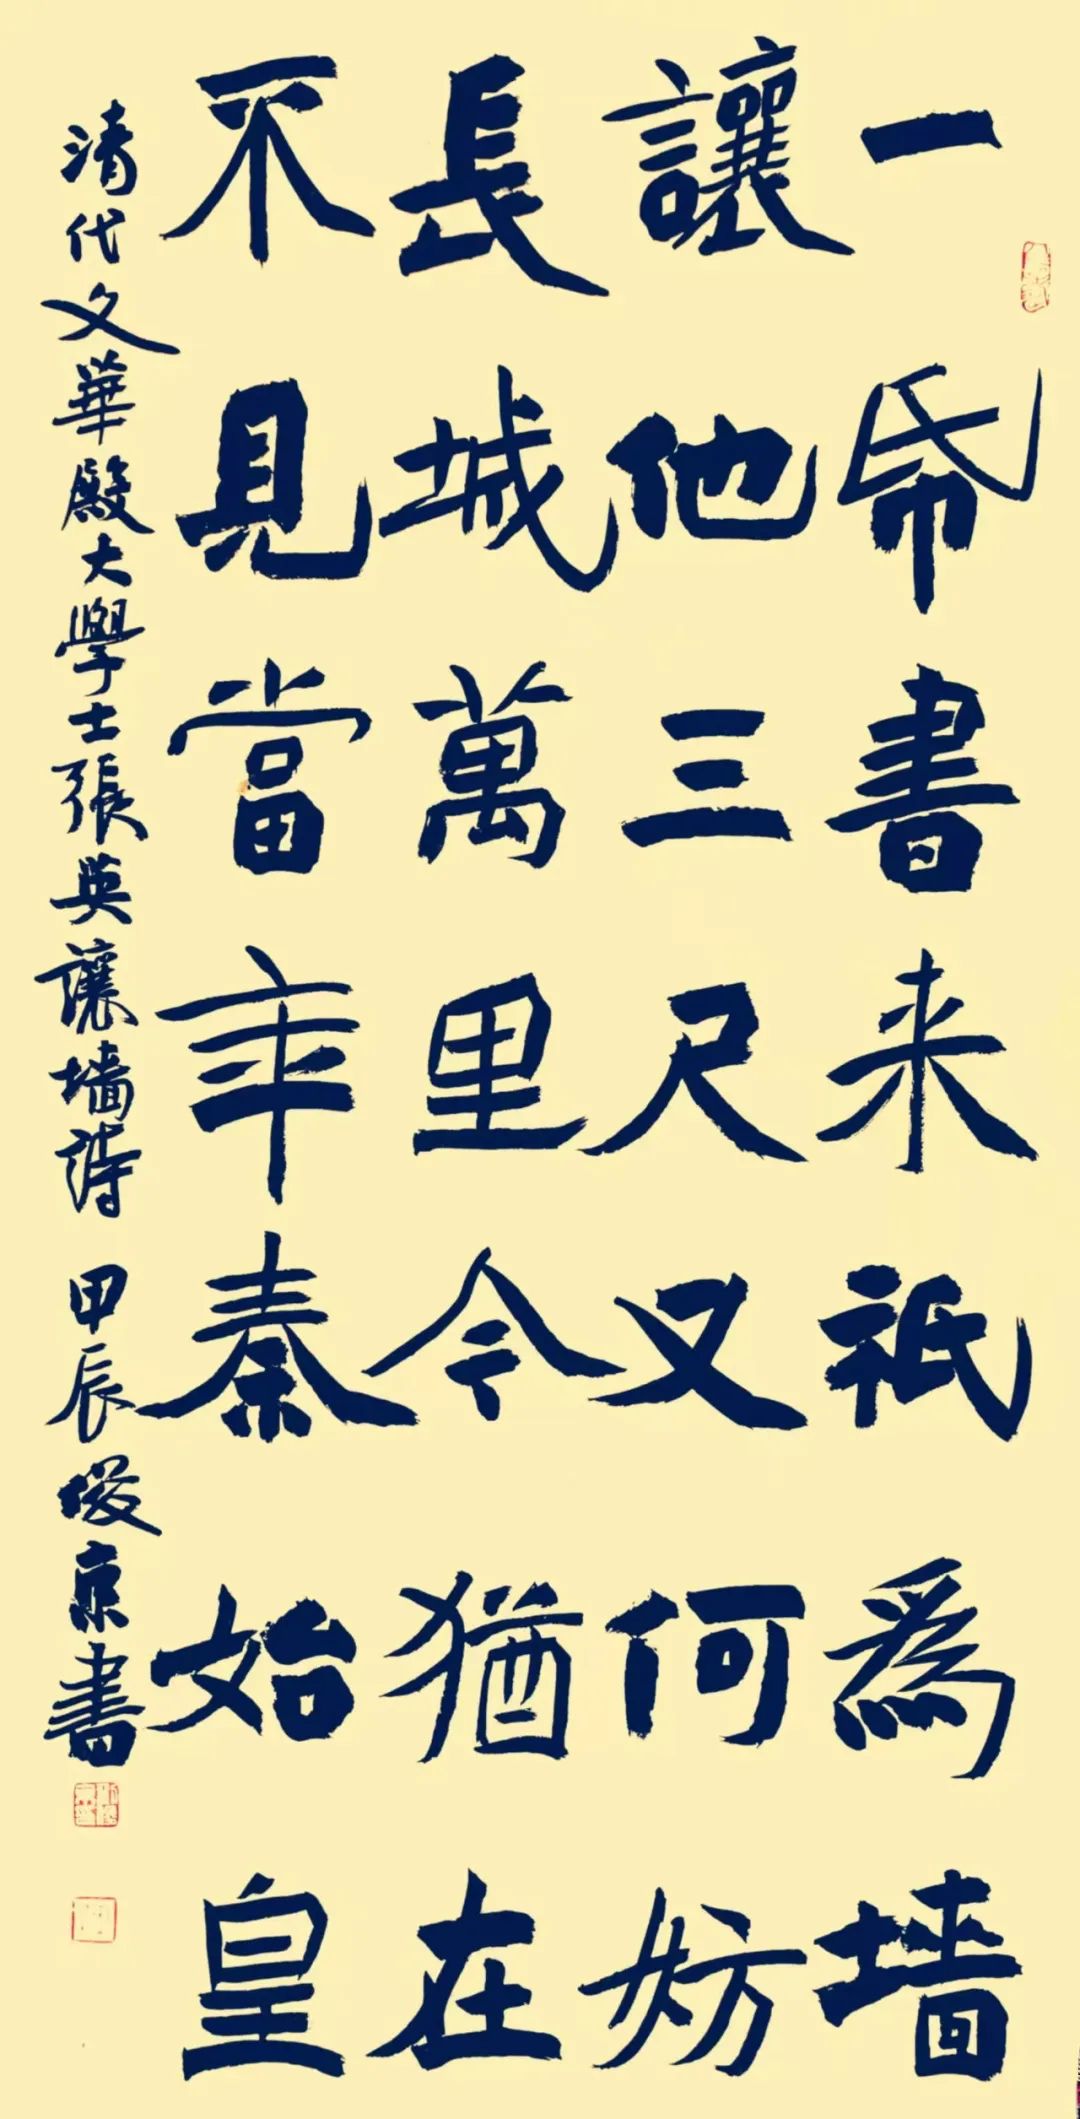 一帋書来祇爲墙
讓他三尺又何妨
長城萬里今猶在
不見當年秦始皇
清代文華殿大學士張英讓墙詩 甲辰俊京書